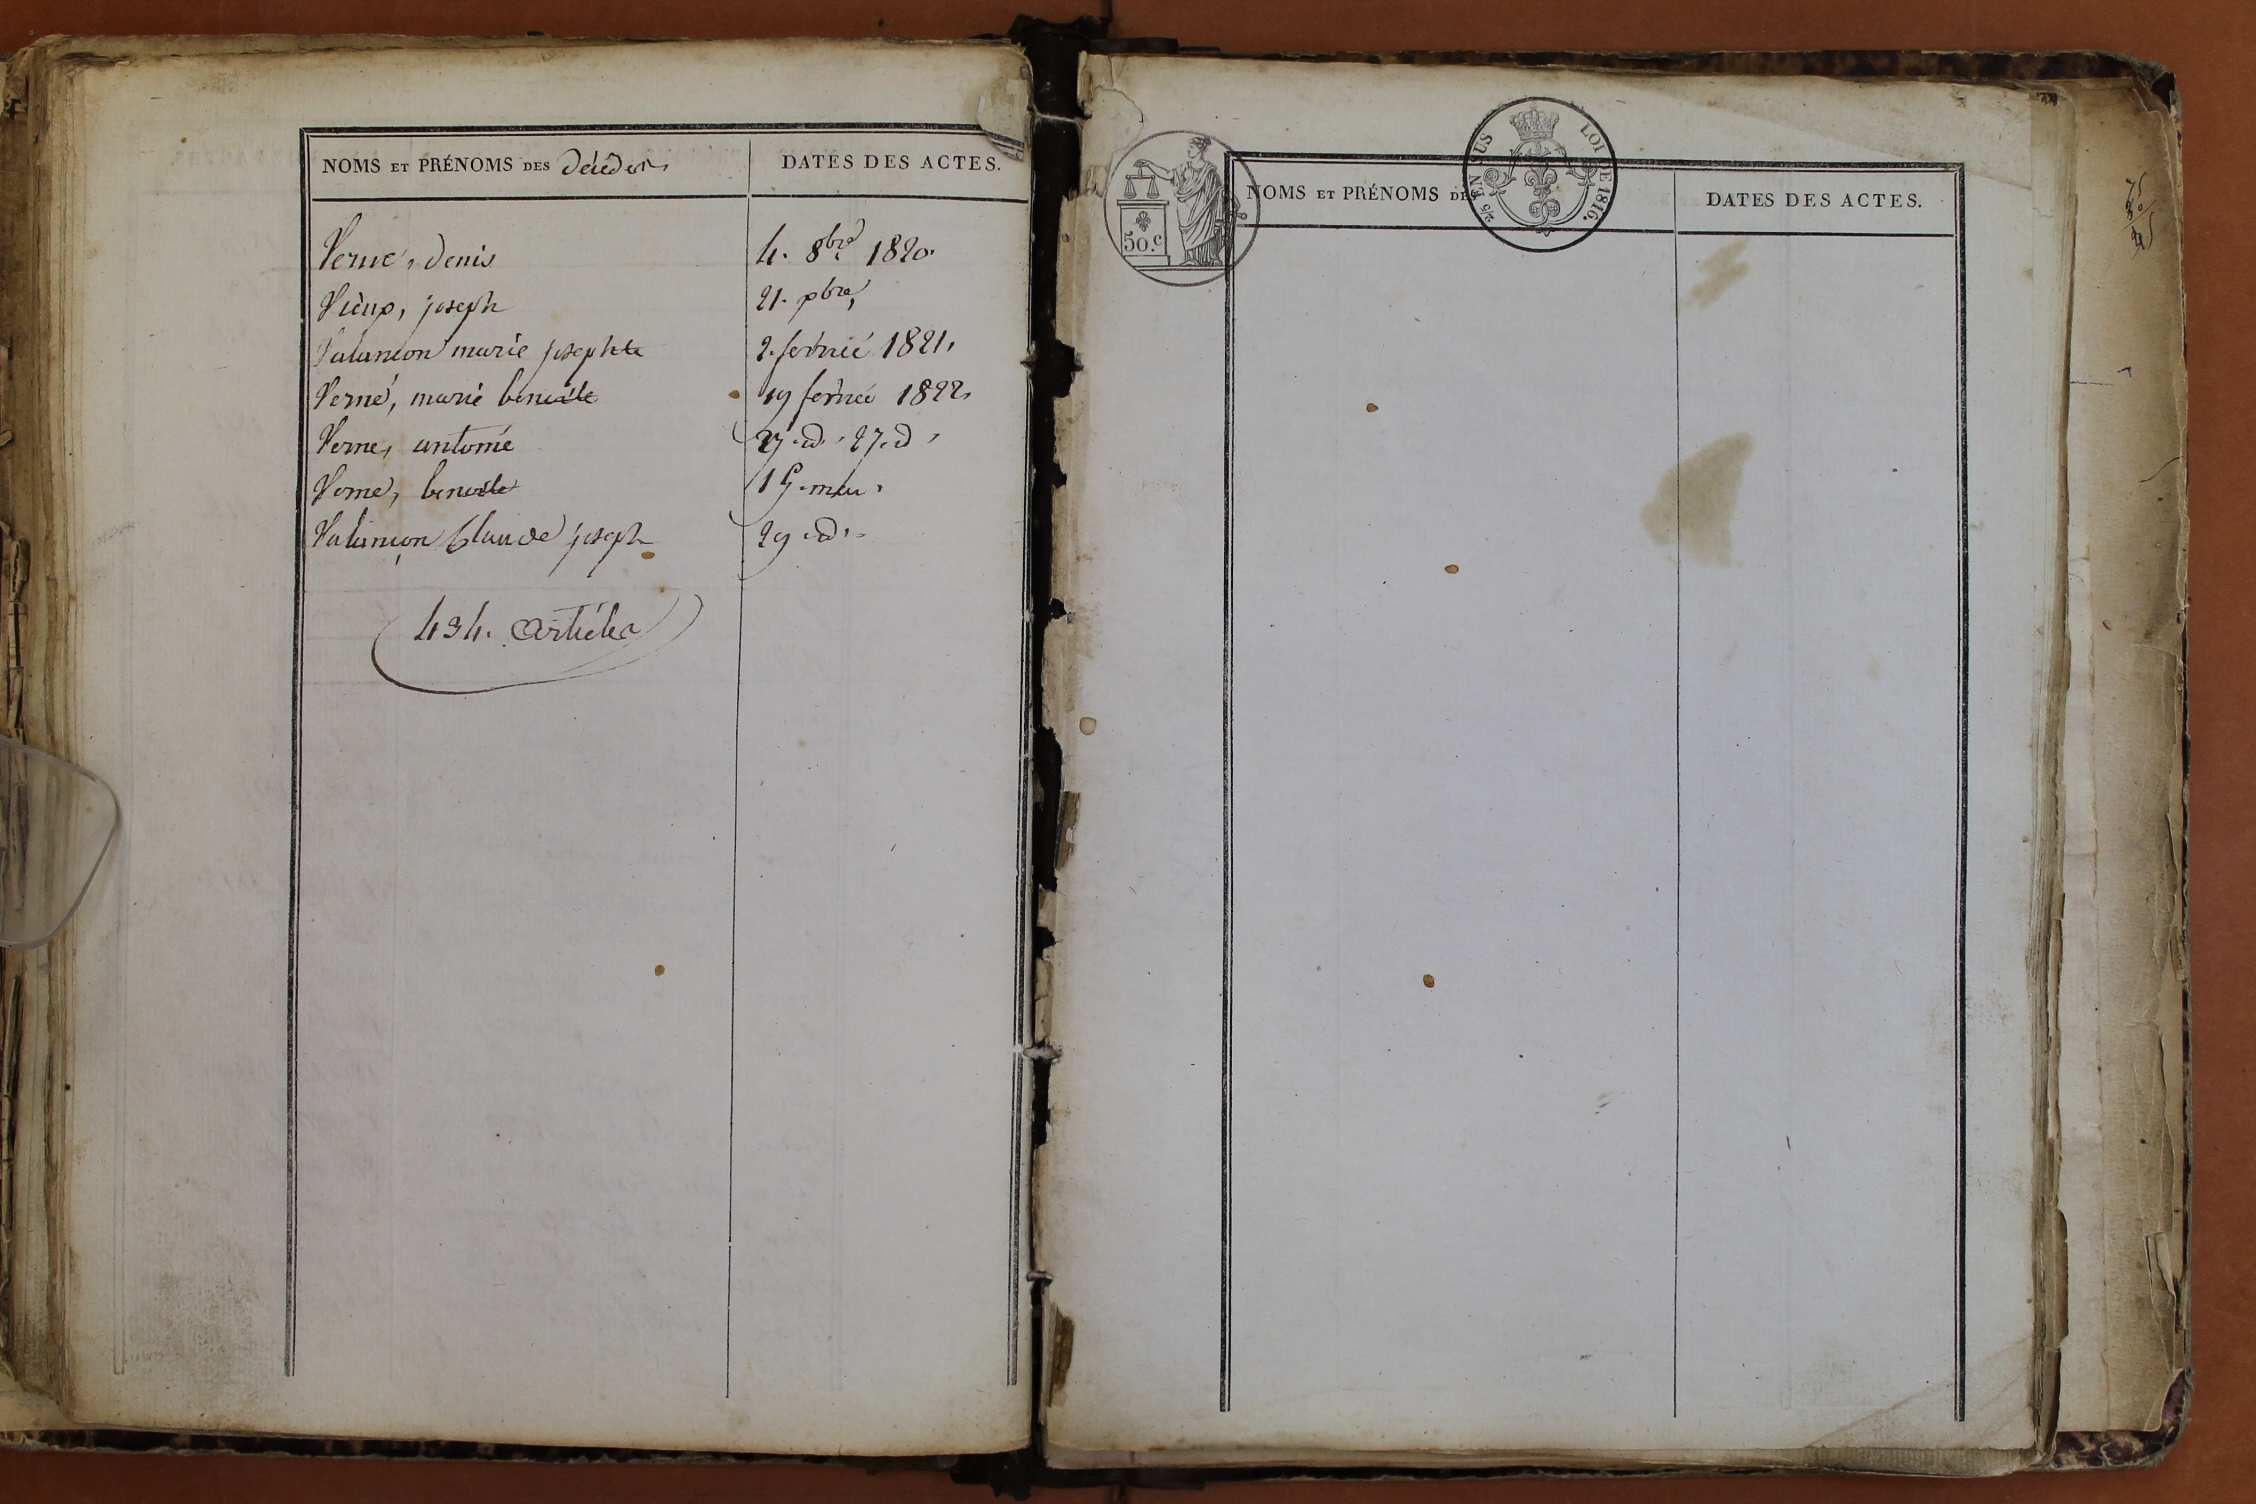 NOMS ET PRÉNOMS DES décédés DATES DES ACTES.
Verne, denis 4. 8bre 1820.
joseph 21.
Valançon marie josephte 2. février 1821.
Verne, marie benoite 19 février 1822.
Verne, antoine 27. d. 27. d.
Verne, benoite 15. mai.
Valançon Claude joseph 29. d.
434. articles
50.c
2/5 EN SUS LOI DE 1816.
NOMS ET PRÉNOMS DES DATES DES ACTES.